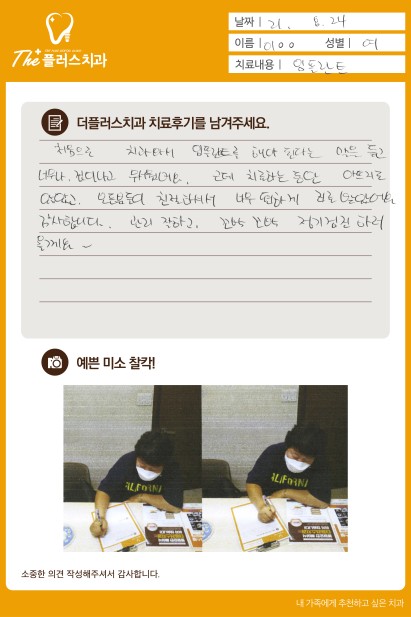 THE PLUS DENTAL CLINIC
The+ 플러스치과
날짜 | 21. 8. 24
이름 | 이OO 성별 | 여
치료내용 | 임플란트
더플러스치과 치료후기를 남겨주세요.
처음으로 치과와서 임플란트를 해야 된다는 말을 듣고
너무나 겁나고 무서웠어요. 근데 치료하는 동안 아프지도
않았고, 모든분들이 친절하셔서 너무 편하게 치료 받았어요
감사합니다. 관리 잘하고, 꼬박 꼬박 정기검진 하러
올게요~
예쁜 미소 찰칵!
소중한 의견 작성해주셔서 감사합니다.
내 가족에게 추천하고 싶은 치과